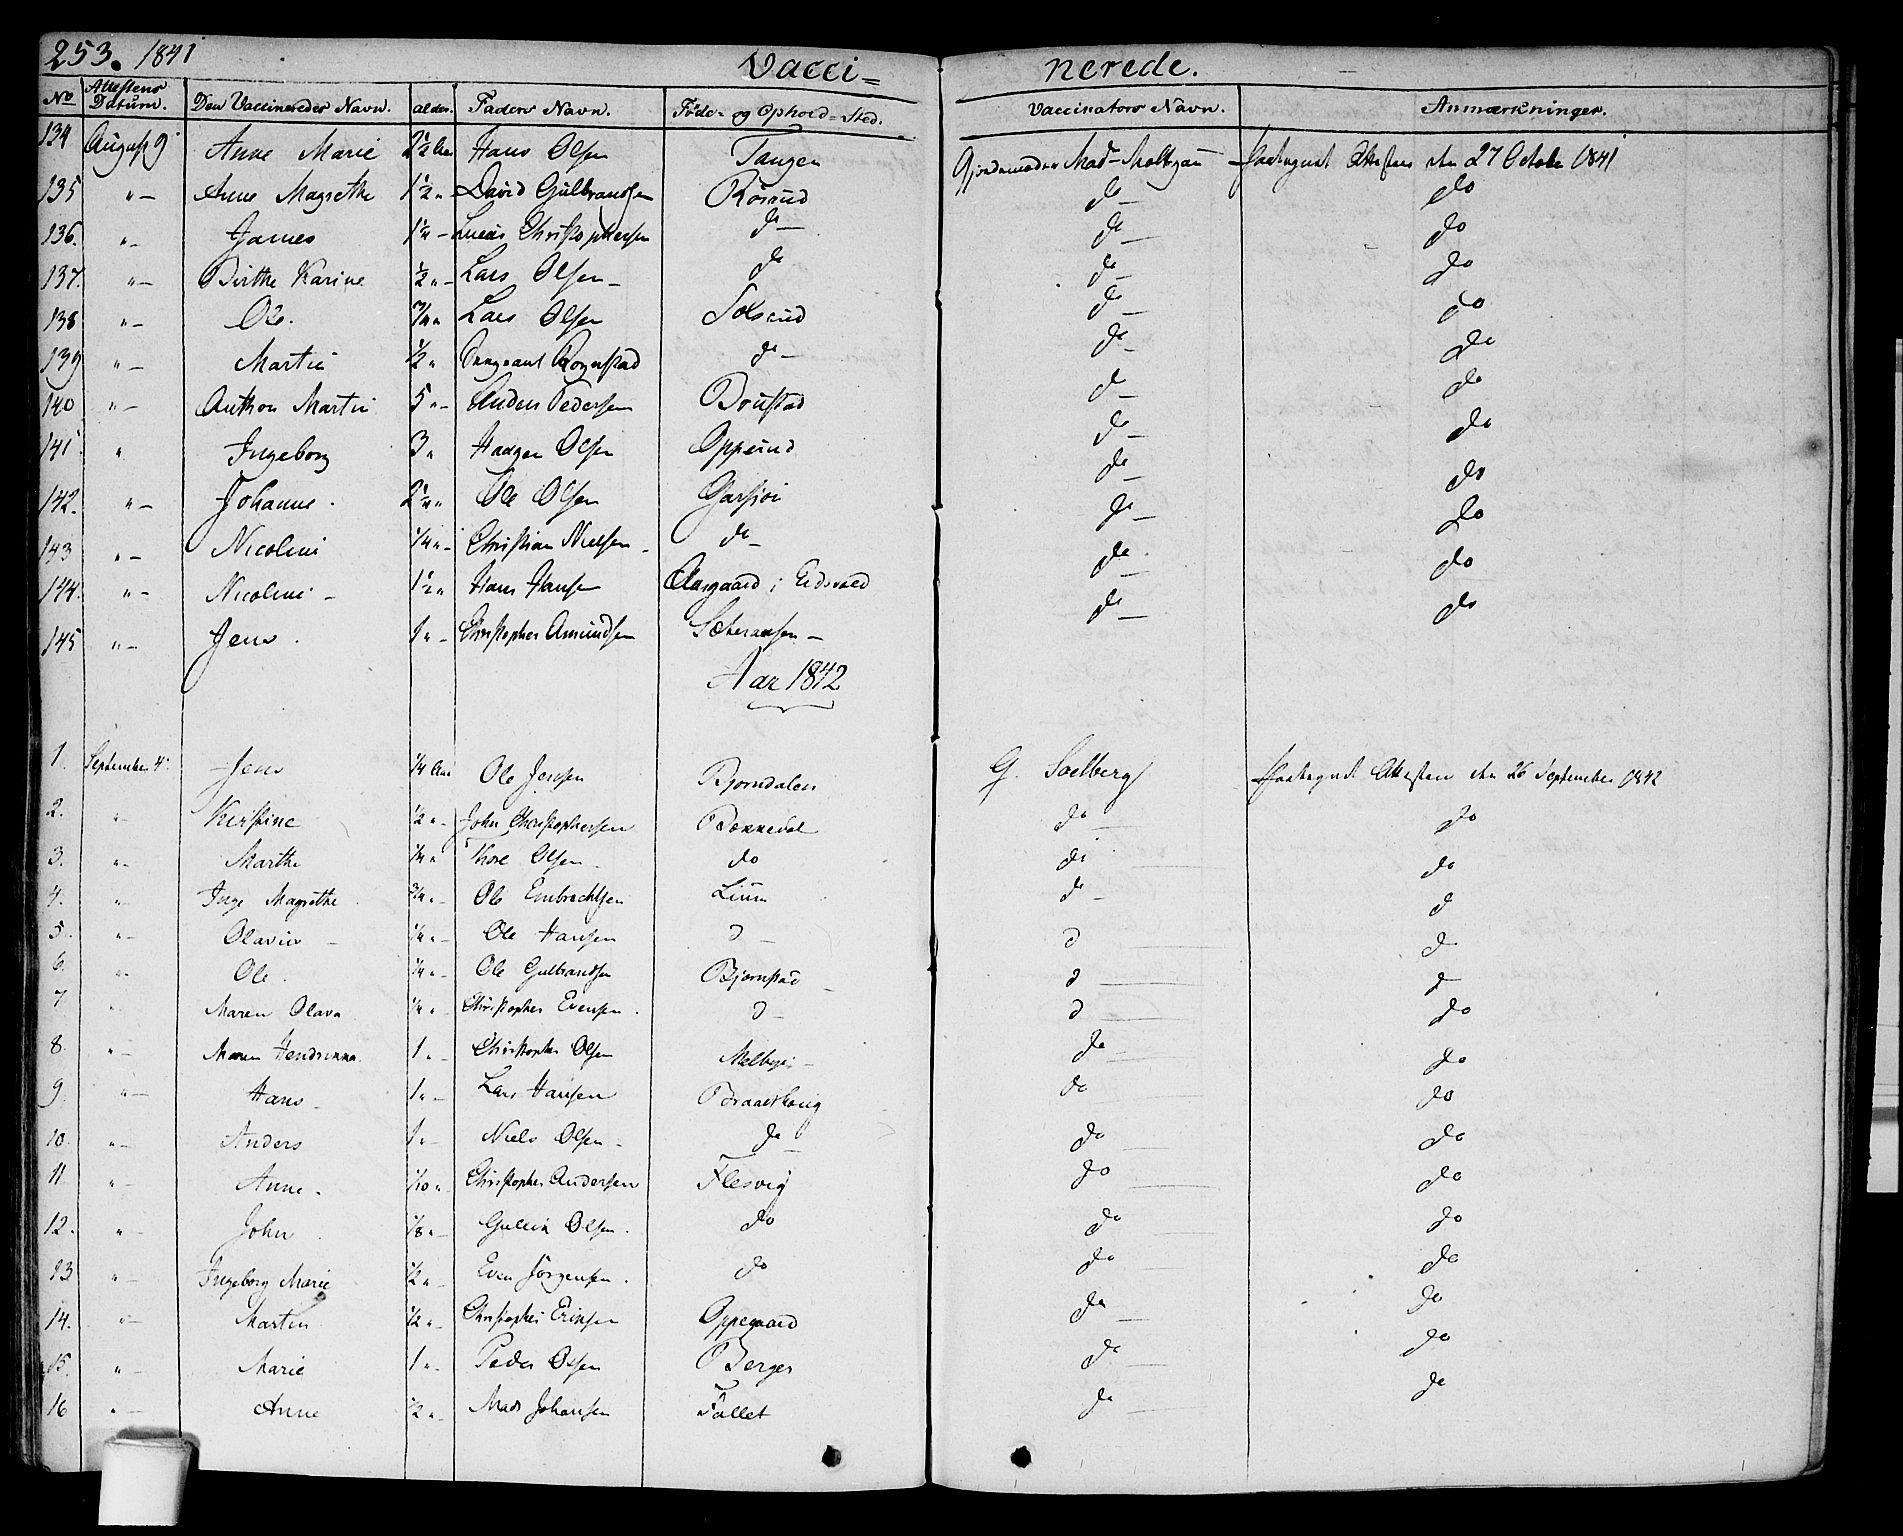 253. 1841 Vacci= nerede.
No Attestens Datum. Den Vaccineredes Navn. alder. Faders Navn. Föde- og Ophold-Sted. Vaccinators Navn. Anmærkninger.
134 August 9 Anne Marie 2 1/2 Aar Hans Olsen Tangen Gjordemoder Mad Attesten den 27 October 1841
135 " — Anne Magrethe 1 1/2 " David Gulbrandsen Rösrud do — do
136. " — James 1 1/4 — Lucas Christophersen do — do — do
137. " — Birthe Karine 1/2 " — Lars Olsen — do do — do
138 " — Ole. 3/4 " Lars Olsen Solsrud do — do
139 " — Martin 1/2 " Sergeant Rognstad do — do — do
140 " — Anthon Martin 5 " — Anders Pedersen Boustad do — do
141 " Ingeborg 3 " Haagen Olsen Oppsund do — do
142. " — Johanne. 2 1/4 " Ole Olsen Garsjöi do — do
143 " — Nicolini 1/4 " — Christian Nielsen — do — do — do
144. " — Nicolini — 1 1/2 " Hans Hansen Aasgaard i Eidsvold do — do
145 " — Jens. 1 " — Christopher Amundsen Sæteraasen — do — do
Aar 1842
1. September 4. Jens 1/4 Aar Ole Jensen Bjorndalen G. Soelberg Attesten den 26 September 1842
2. " Kirstine 1/2 " — John Christophersen Bækkedal do — do
3. " — Marthe 1/4 " Thore Olsen — do do do
4. " — Inge Magrethe 3/4 " — Ole Embrechtsen Lium do — d
5. " — Olavus — 1/4 " — Ole Hansen d — d d
6. " — Ole. 1/4 " — Ole Gulbrandsen Bjørnstad — d d
7 " Maren Olava 1/4 " — Christopher Evensen. d — d do
8. " — Maren Hendrikka. 1 " — Christopher Olsen Melbyei — do do
9. " — Hans — 1 " — Lars Hansen Braatehoug do do
10. " — Anders 1 " — Niels Olsen — do — do do
11 " — Anne. 1/10 " — Christopher Andersen Flesvig do do
12. " — John 1/8 " — Gullik Olsen. do do do
13 " — Ingeborg Marie 1/2 " — Even Jörgensen. do do do
14. " — Martin 1/2 " — Christopher Eriksen Oppegaard do — do
15. " — Marie 1 " — Peder Olsen Berger do do
16 " — Anne 1/2 " — Mads Johansen Fallet do do